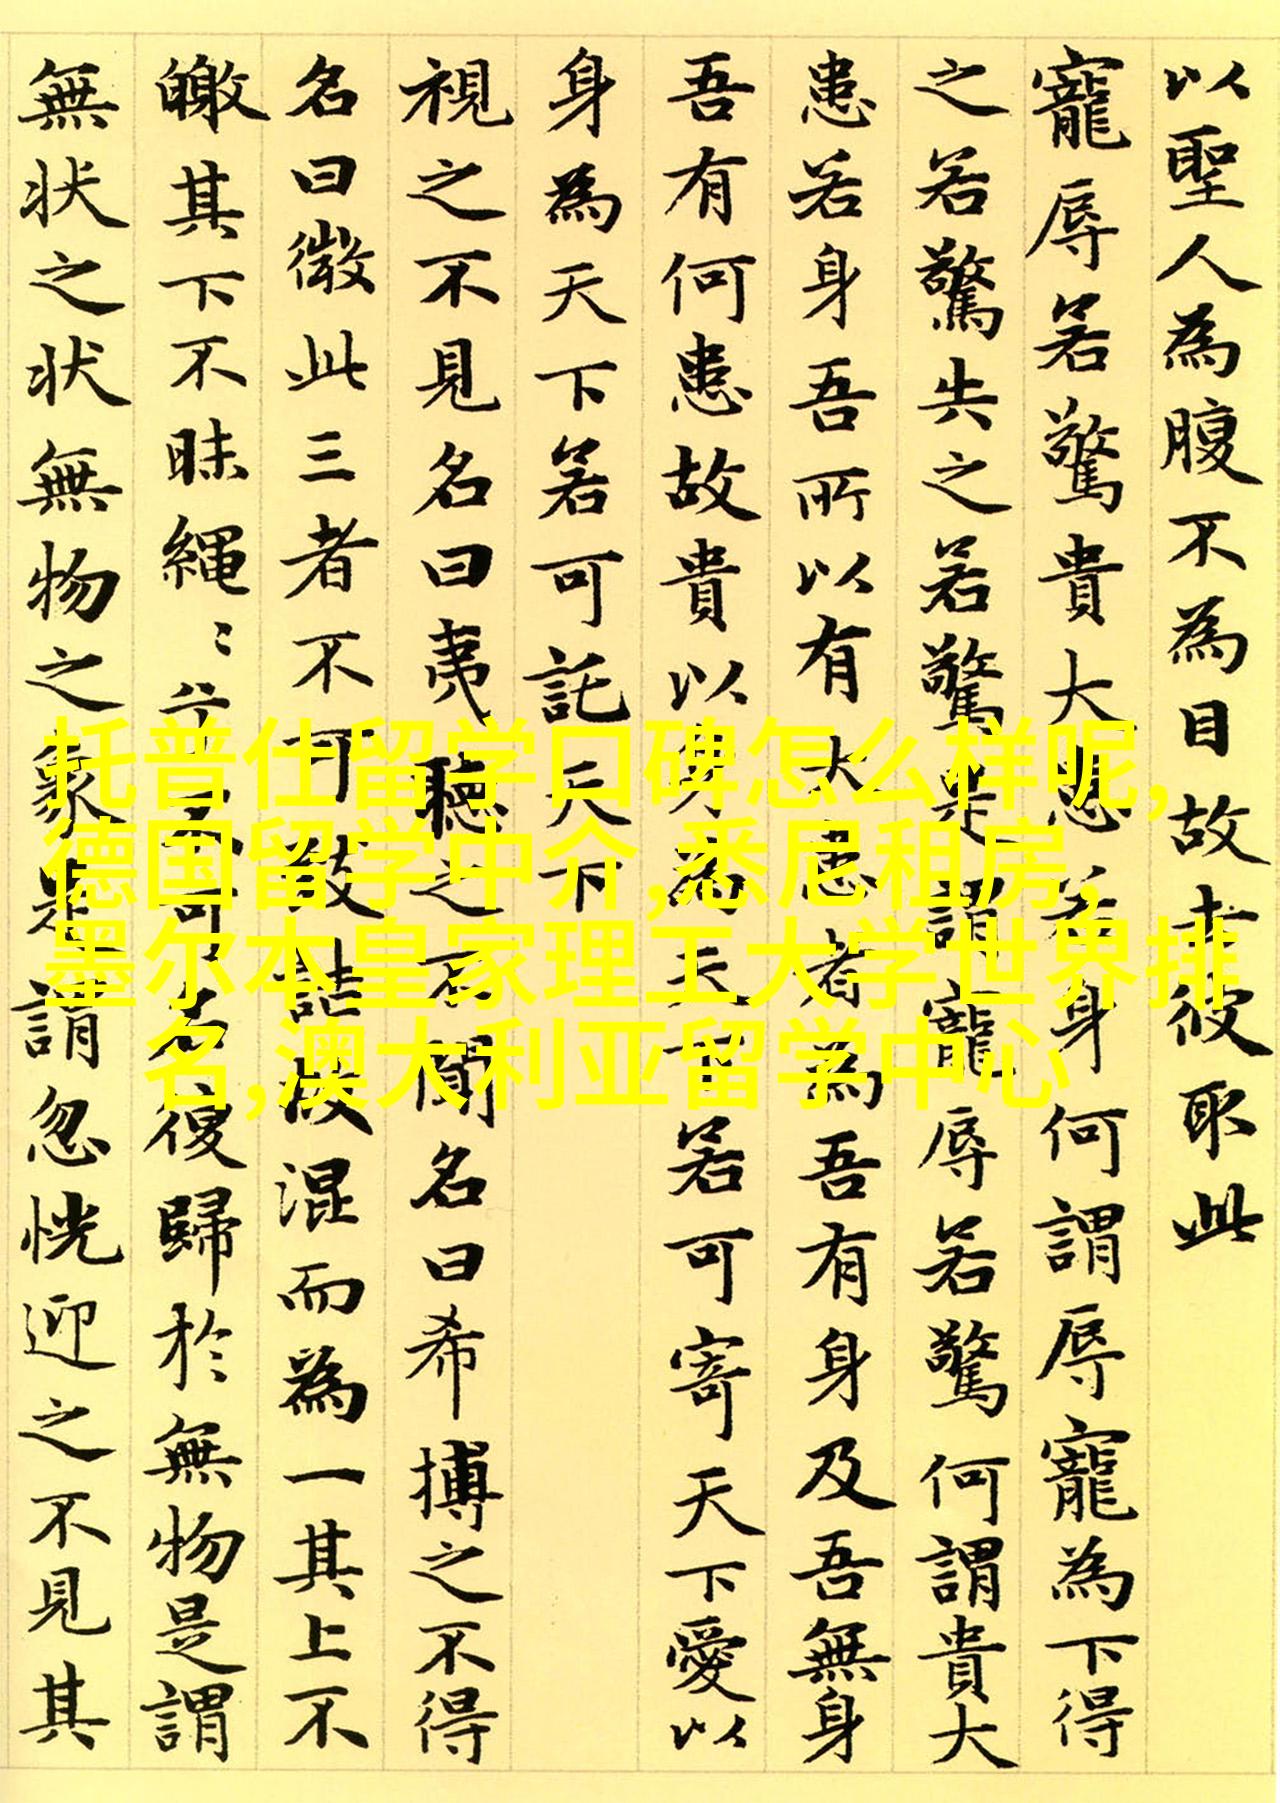 以聖人為腹不為目故去彼取此
寵辱若驚貴大患若身何謂辱寵為下得
之若驚失之若驚是謂寵辱若驚何謂貴大
患若身吾所以有大患者為吾有身及吾無身
吾有何患故貴以身為天下若可寄天下愛以
身為天下若可託天下
視之不見名曰夷聽之不聞名曰希搏之不得
名曰微此三者不可致詰故混而為一其上不
皦其下不昧繩〻兮不可名復歸於無物是謂
無状之状無物之象是謂忽恍迎之不見其
托普仕留学口碑怎么样呢,
德国留学中介,悉尼租房,
墨尔本皇家理工大学世界排
名,澳大利亚留学中心